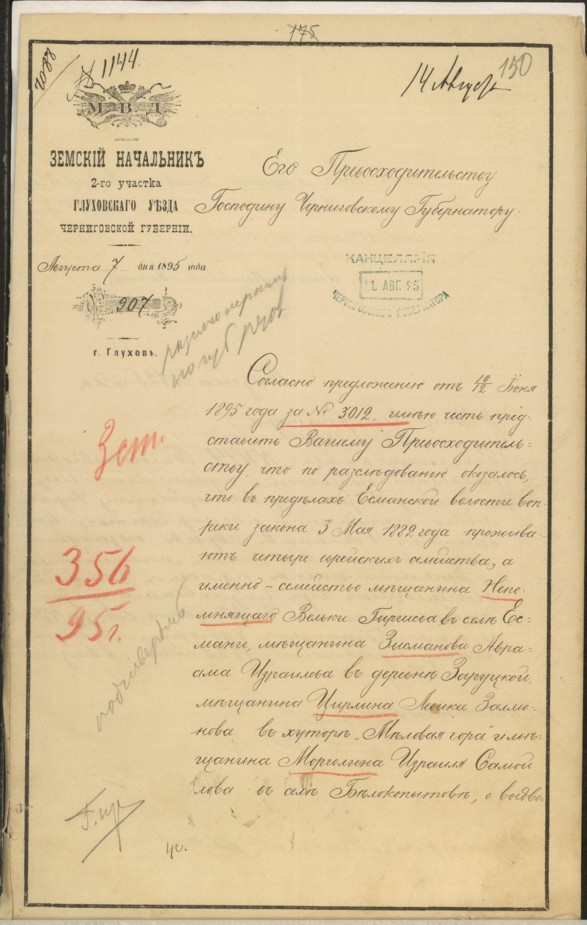 175
150
2088
№ 1144.
14 Августа
М. В. Д.
ЗЕМСКІЙ НАЧАЛЬНИКЪ
2-го участка
ГЛУХОВСКАГО УѢЗДА
ЧЕРНИГОВСКОЙ ГУБЕРНІИ.
Августа 7 дня 1895 года
907
г. Глуховъ.
Его Превосходительству
Господину Черниговскому Губернатору.
КАНЦЕЛЯРІЯ
11. АВГ. 95
ЧЕРНИГОВСКАГО ГУБЕРНАТОРА
Согласно предложенію отъ 10/12 Іюня
1895 года за № 3012, имѣю честь пред-
ставить Вашему Превосходитель-
ству что по разслѣдованію оказалось,
что въ предѣлахъ Есманской волости воп-
реки закона 3 Мая 1882 года прожива-
ютъ четыре еврейскихъ семейства, а
именно – семейство мѣщанина Непо-
мнящаго Вельки Гиршева въ селѣ Ес-
мани, мѣщанина Зисманова Авра-
ама Израилева въ деревнѣ Заруцкой,
мѣщанина Цирлина Лейка Залма-
нова въ хуторѣ „Мѣловая гора" и мѣ-
щанина Моргелина Израиля Самой-
лова въ селѣ Бѣлокопытовѣ, о выдво-
3 ст.
356
95 г.